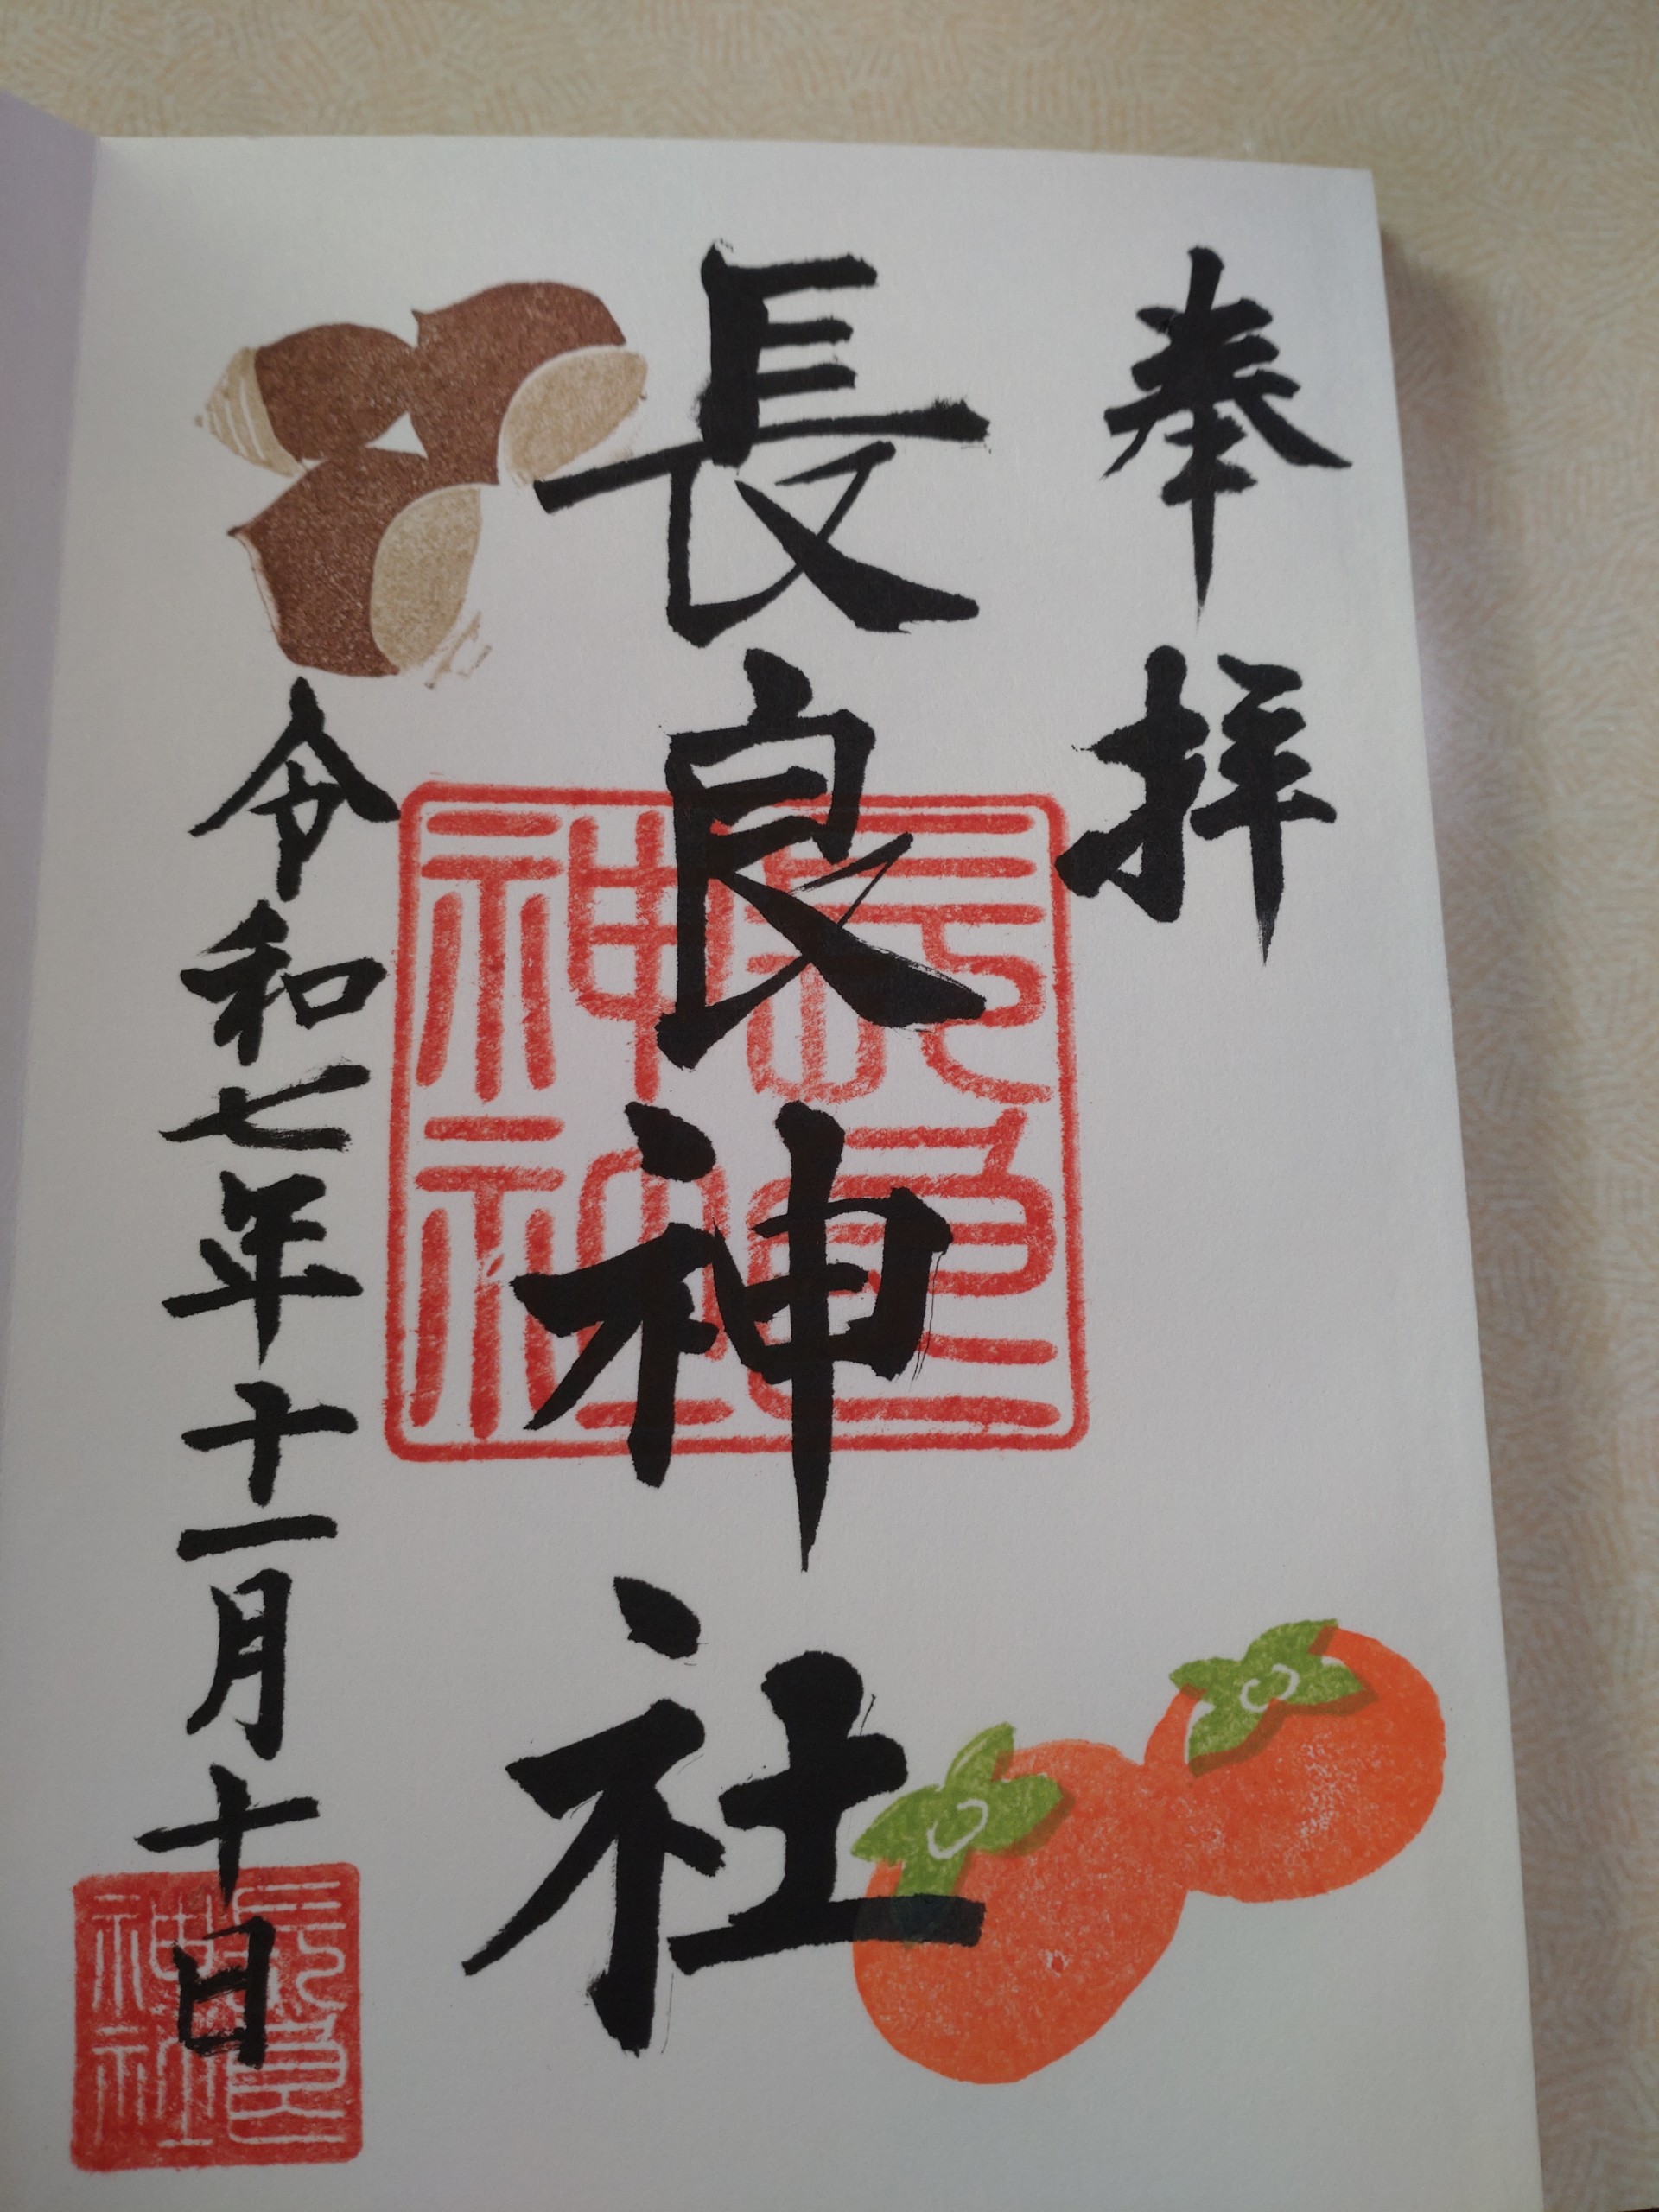 奉拝
長良神社
長良神社
令和七年十一月十日
長良神社